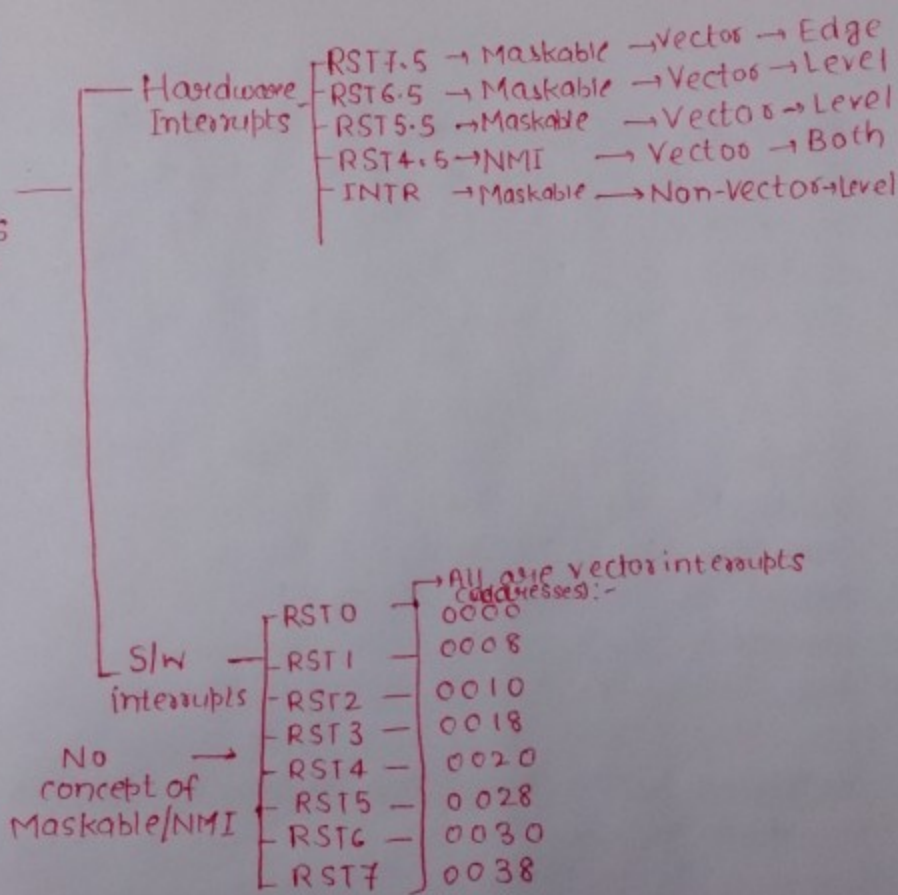 Hardware Interrupts
RST7.5 → Maskable → Vector → Edge
RST6.5 → Maskable → Vector → Level
RST5.5 → Maskable → Vector → Level
RST4.5 → NMI → Vector → Both
INTR → Maskable → Non-vector → Level
S
S/W interrupts
No concept of Maskable/NMI →
→ All are vector interrupts
(addresses):-
RST0 — 0000
RST1 — 0008
RST2 — 0010
RST3 — 0018
RST4 — 0020
RST5 — 0028
RST6 — 0030
RST7 0038